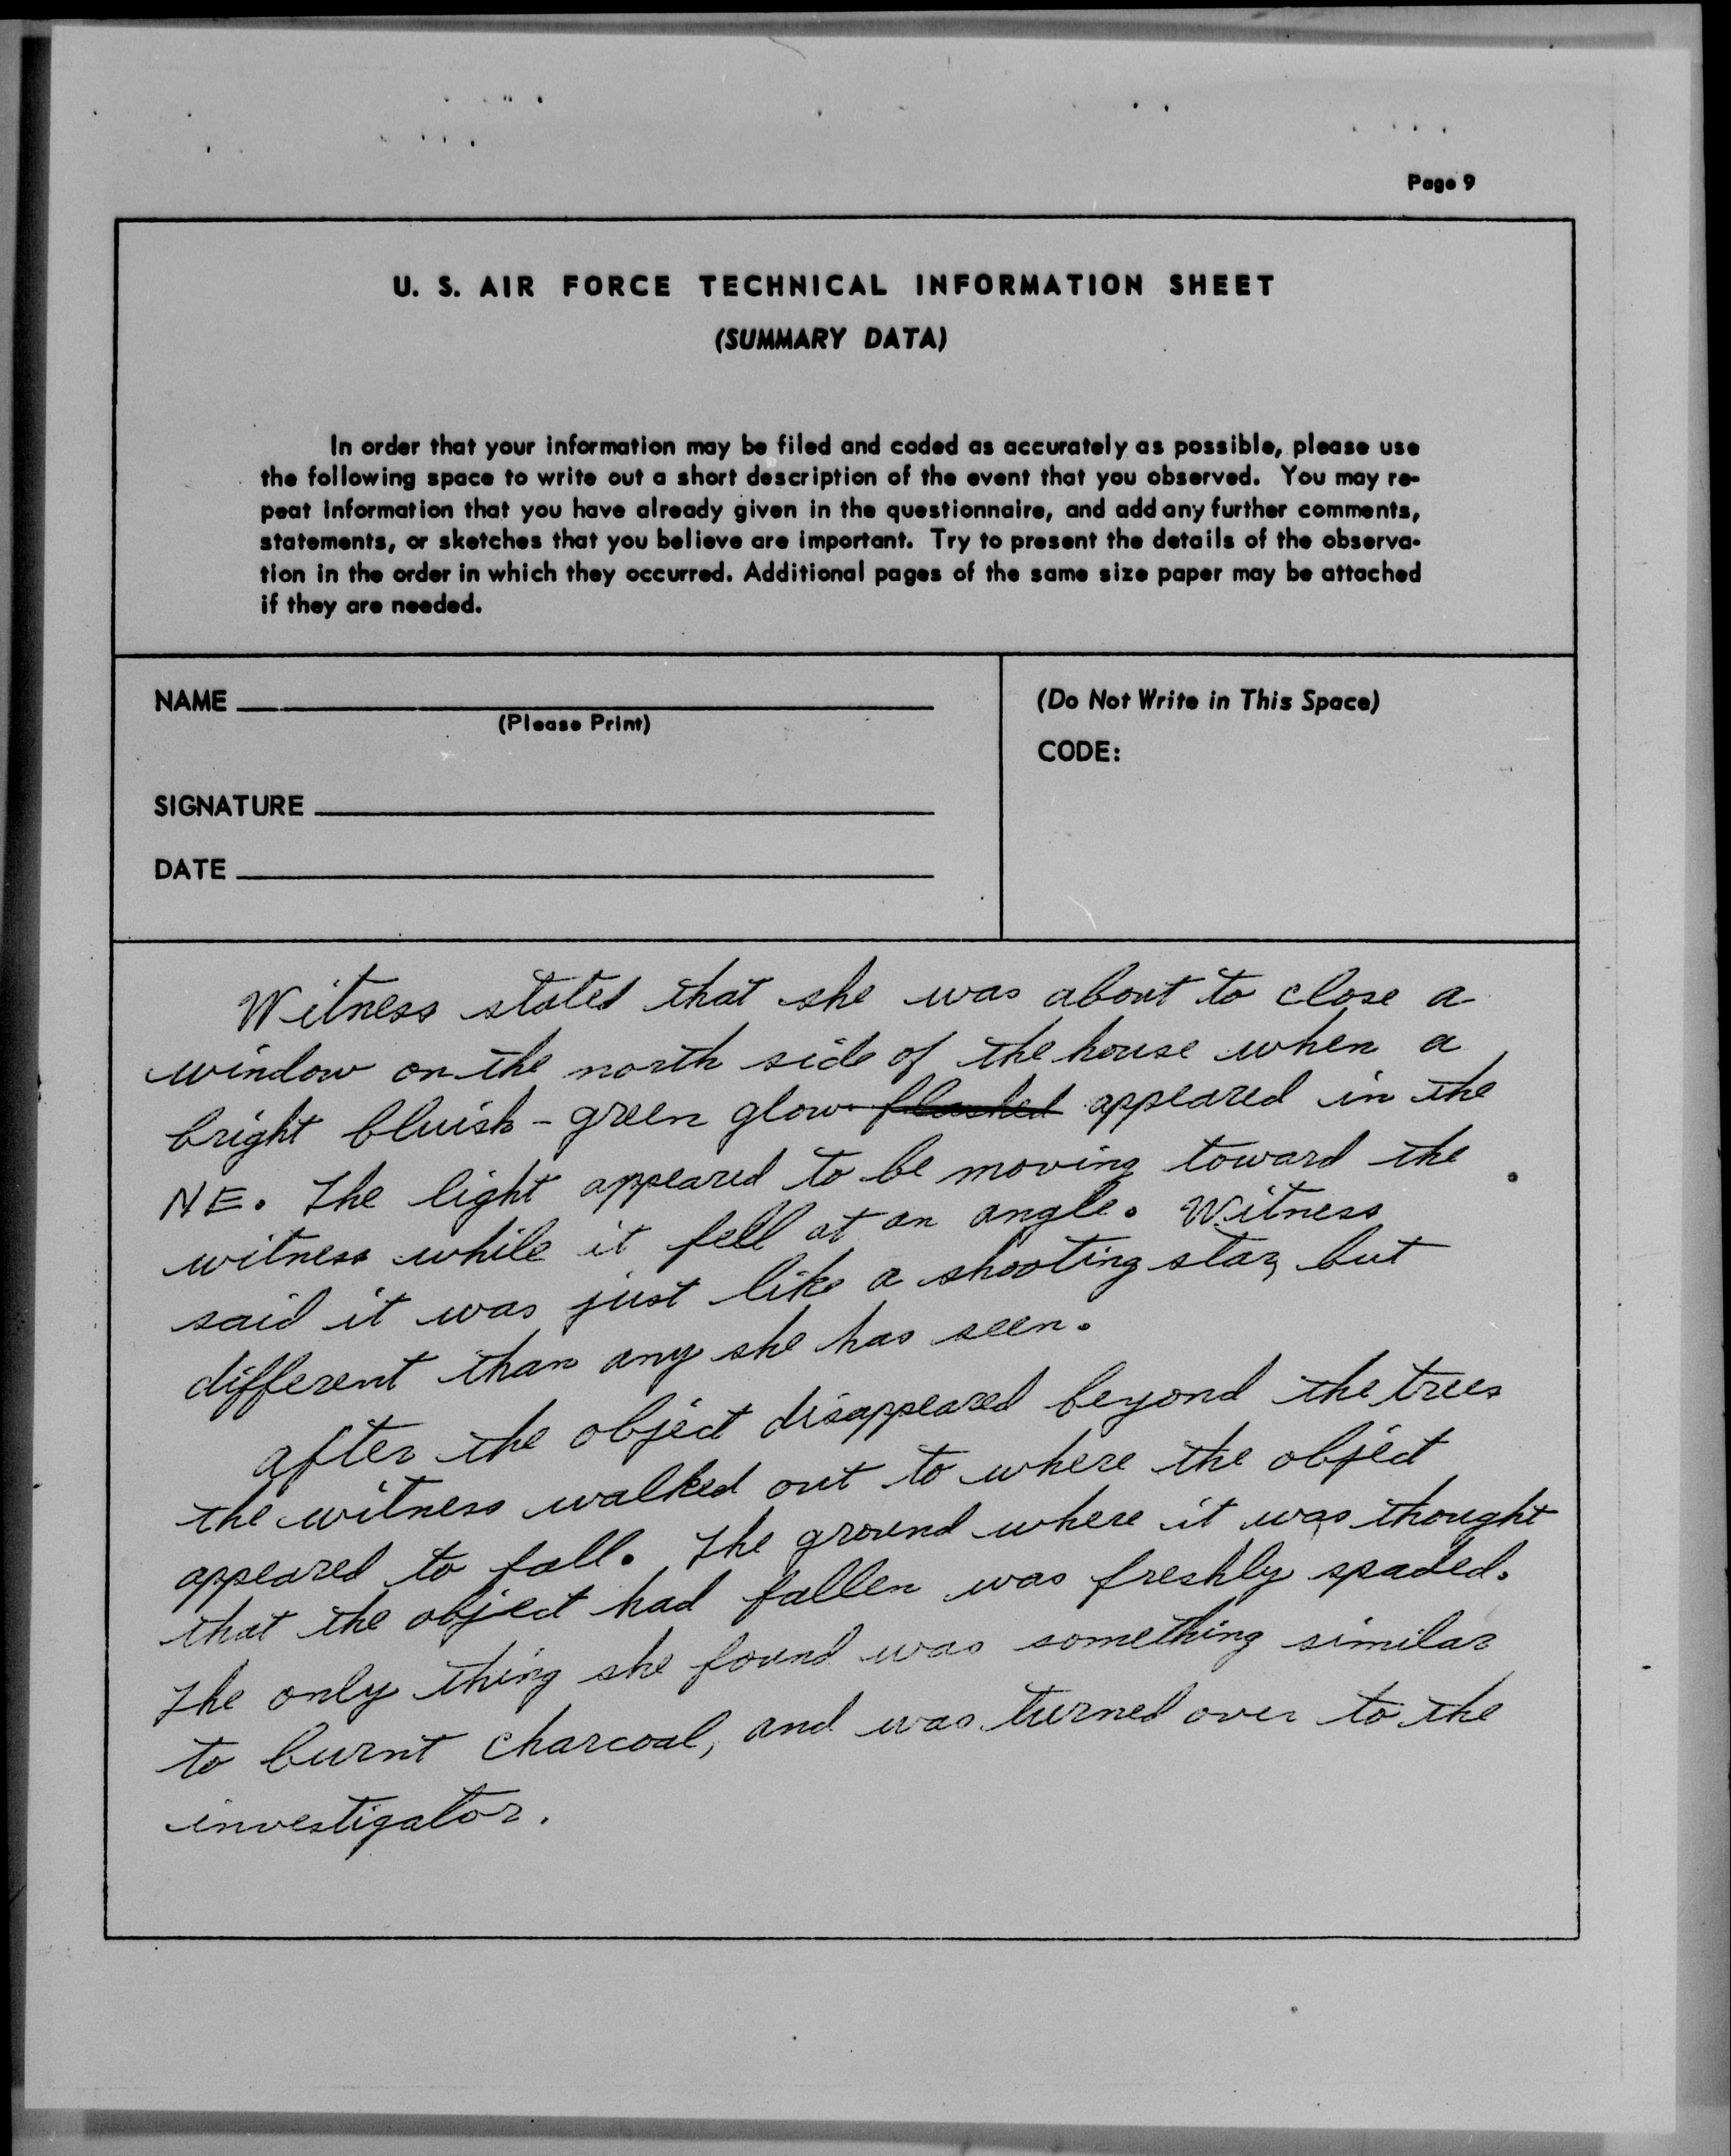 Page 9
U. S. AIR FORCE TECHNICAL INFORMATION SHEET
(SUMMARY DATA)
In order that your information may be filed and coded as accurately as possible, please use
the following space to write out a short description of the event that you observed. You may re-
peat information that you have already given in the questionnaire, and add any further comments,
statements, or sketches that you believe are important. Try to present the details of the observa-
tion in the order in which they occurred. Additional pages of the same size paper may be attached
if they are needed.
NAME
(Please Print)
SIGNATURE
DATE
(Do Not Write in This Space)
CODE:
Witness stated that she was about to close a
window on the north side of the house when a
bright bluish - green glow flashed appeared in the
NE. The light appeared to be moving toward the
witness while it fell at an angle. Witness
said it was just like a shooting star, but
different than any she has seen.
After the object disappeared beyond the trees
the witness walked out to where the object
appeared to fall. The ground where it was thought
that the object had fallen was freshly spaded.
The only thing she found was something similar
to burnt charcoal, and was turned over to the
investigator.